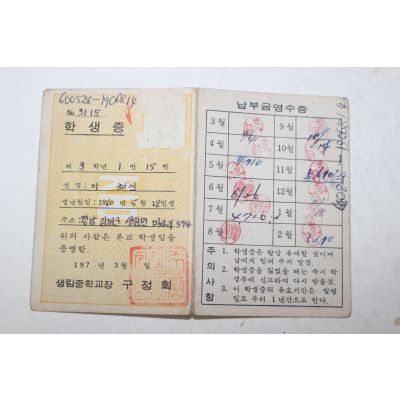 600528-1906814
No. 3115
학생증
제 3 학년 1 반 15 번
성명: 이
생년월일: 1960년 5월 28일생
주소: 경남 김해군 생림면 594
위의 사람은 본교 학생임을
증명함.
197 년 3월 일
생림중학교장 구정회
납부금영수증
3월
9월
4월
10월
5월
11월
6월
12월
7월
1월
8월
2월
주의사항
1. 학생증은 항상 휴대할 것이며
남에게 빌려 주지 말것.
2. 학생증을 잃었을 때는 즉시 학
생부에 신고하여 다시 받을것.
3. 이 학생증의 유효기간은 발행
일로 부터 1년간으로 한다.